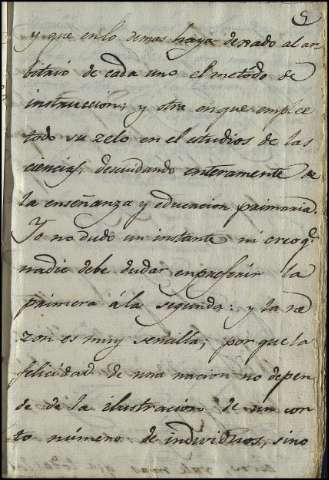 5
y que en lo demas haya dexado al ar
bitrio de cada uno el metodo de
instruccion; y otra en que emplee
todo su zelo en el estudios de las
ciencias, descuidando enteramente
la enseñanza y educacion primaria.
Yo no dudo un instante ni creo q.
nadie debe dudar en preferir la
primera á la segunda: y la ra
zon es muy senzilla; por que la
felicidad de una nacion no depen
de de la ilustracion de un cor
to número de individuos, sino